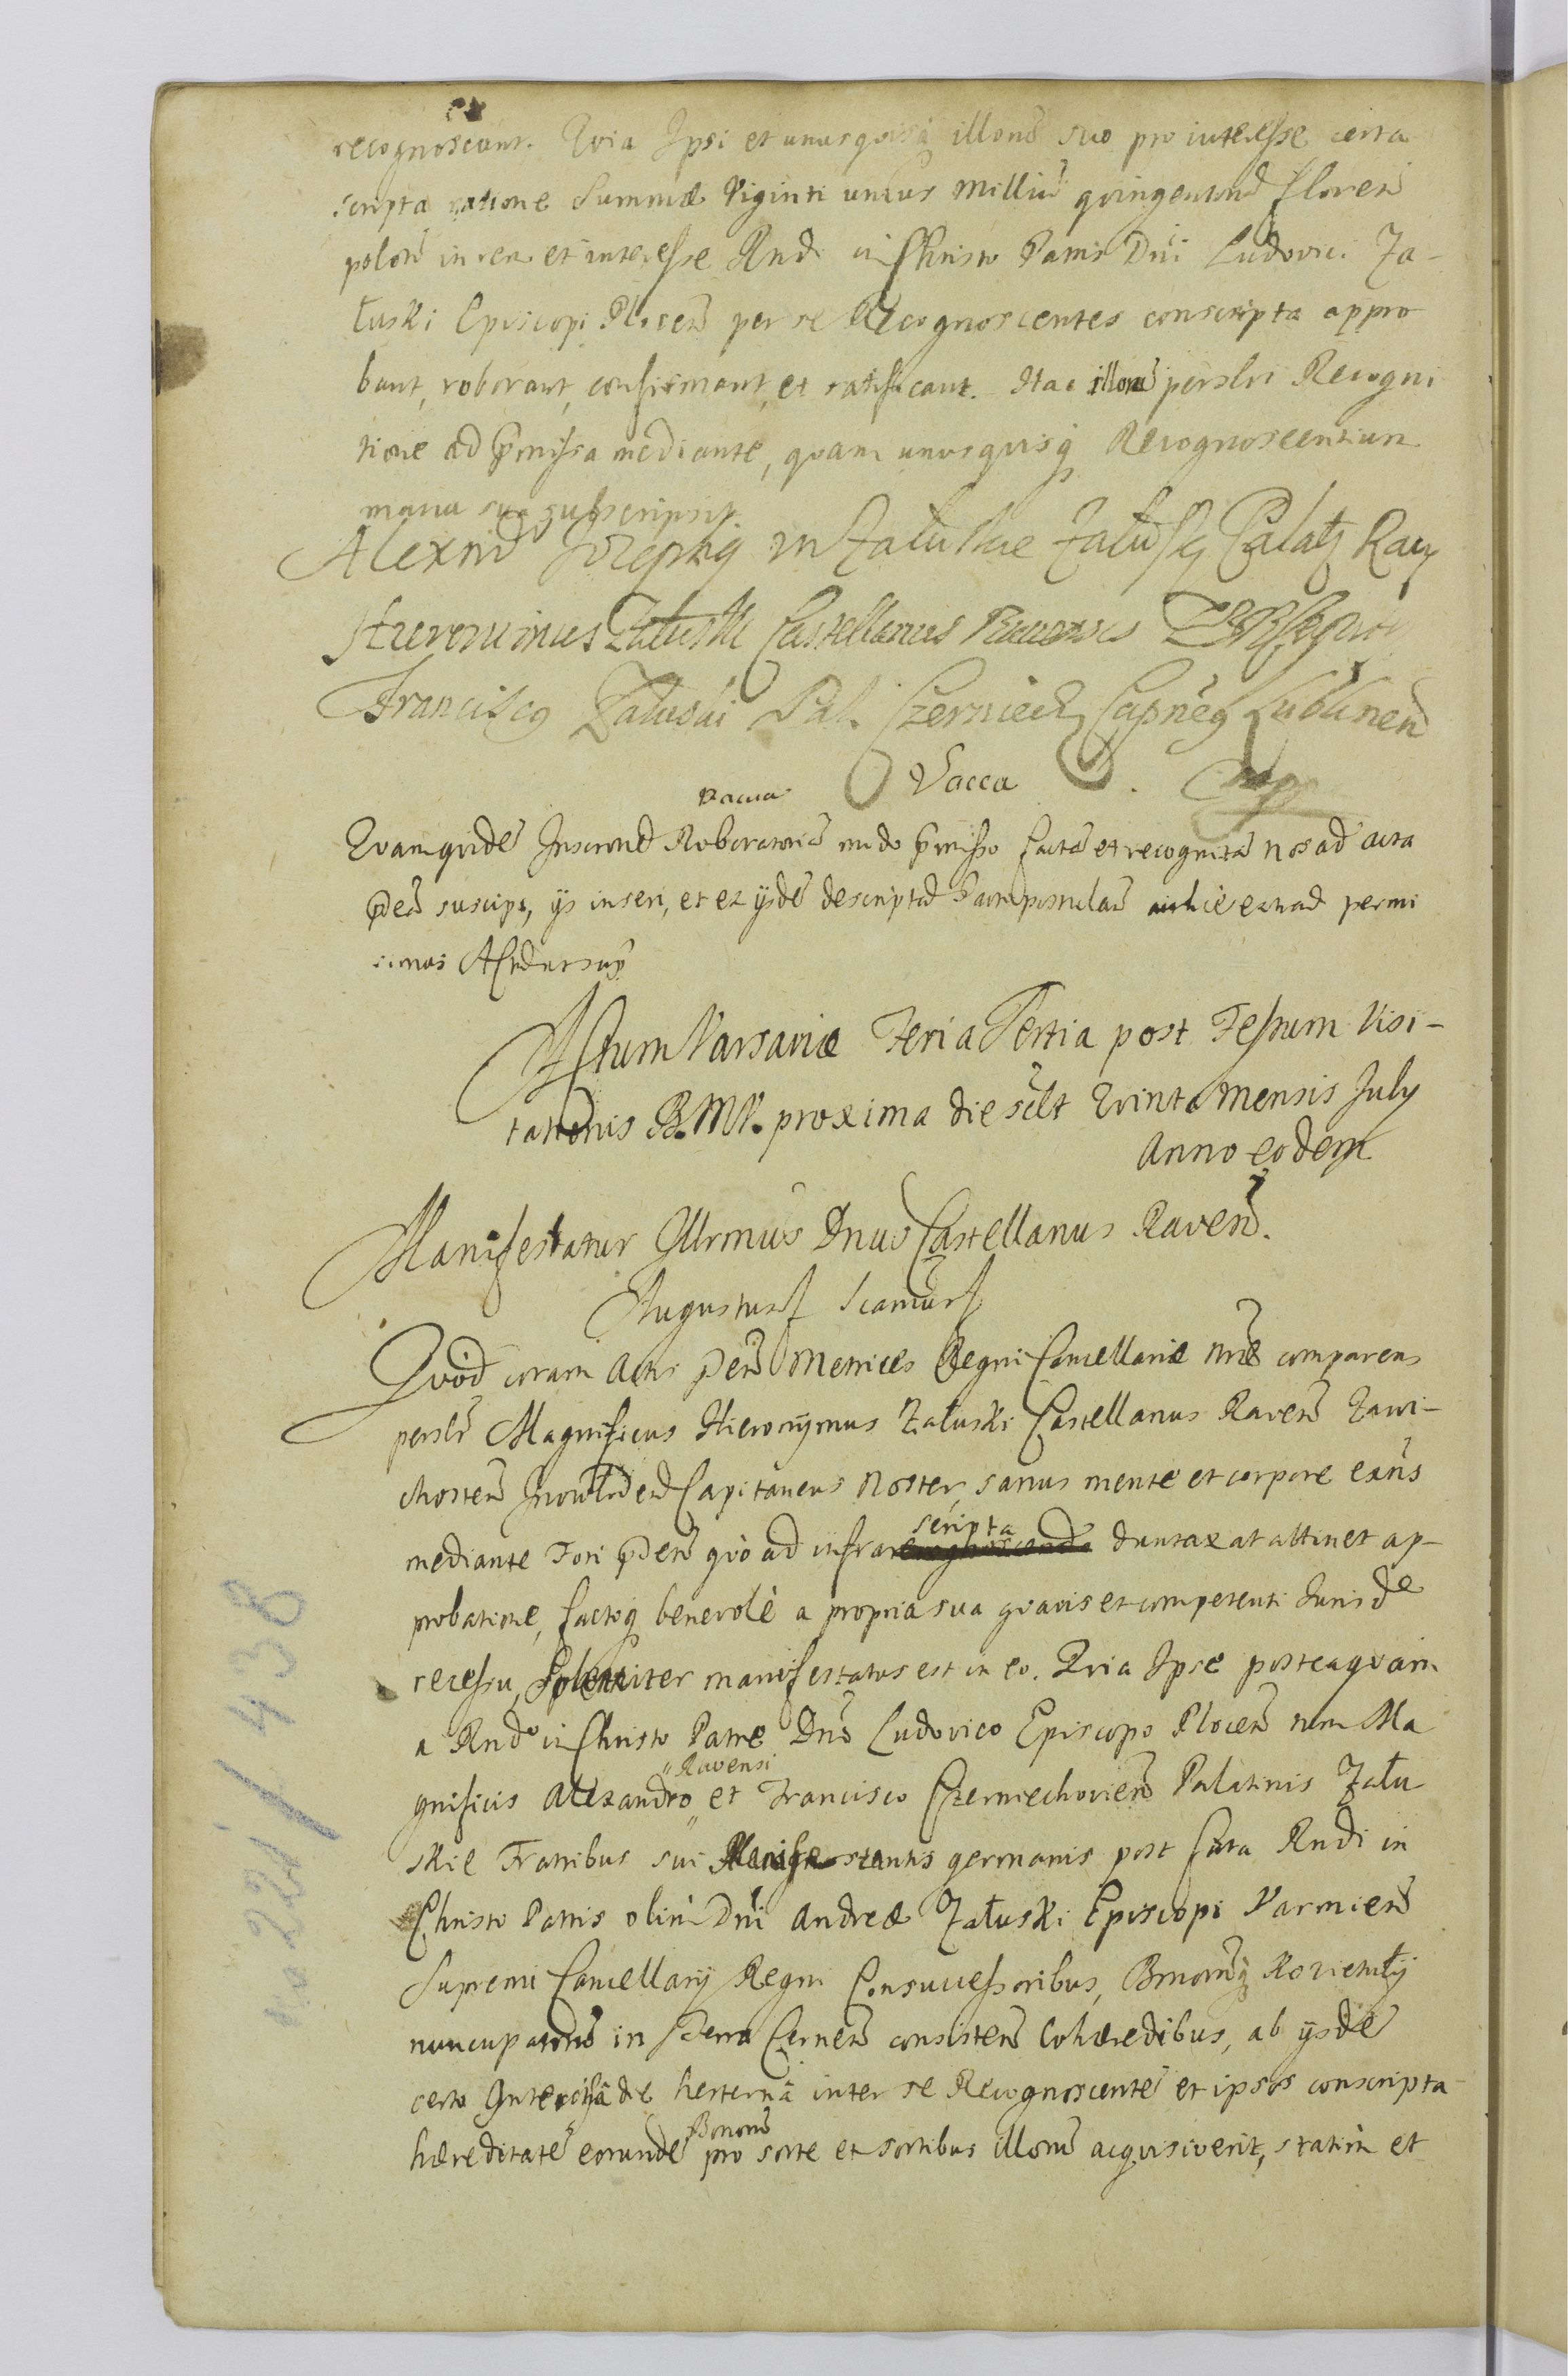 recognoscunt. Quia Ipsi et unusquisq illorũ suo pro interesse certa
scripta ratione Summæ Viginti unius Milliũ quingentorũ floren̄
polon̄ in rem et interesse Rndi in Christo Patris Dni Ludovici Za-
łuski Episcopi Plocen̄ per se Recognoscentes conscripta appro
bant, roborant, confirmant, et ratificant. Hac illorũ personli Recogni
tione ad p̄missa mediante, quam unusquisq Recognoscentium
manu sua subscripsit.
Alexnd Josephq in Załuskie Załusky Palatq
Hieronimus Załuski Castellanus Ravensis
Franciscq Załuski Pal. Czerniech Capneq Lublinen̄
Vacca
Quamquidē Roboratoriā modo p̄misso factā et recognitā nos ad acta
p̄den̄ suscipi, ijs inseri, et ex ijsdē permi
simus
Actum Varsaviæ Feria Tertia post Festum Visi-
tationis B.M.V. proxima die sclt Quinta Mensis July
Anno eodem
Manifestatur Illrmus Dnus Castellanus Raven̄.
Augustus
Quod coram Actis p̄den̄ Metrices Regni Cancellariæ nræ comparens
personlr Magnificus Hieronymus Załuski Castellanus Raven̄ Zawi-
chosten̄ Capitaneus Noster, sanus mente et corpore exñs
scripta
mediante Fori p̄den̄ quò ad infra duntaxat attinet ap-
probatione, factoq benevolè a propria sua quavis et competenti Juris de
recessu, solenniter manifestatus est in eo. Quia Ipse posteaquam
a Rndo in Christo Patre Dno Ludovico Episcopo Plocen̄ tum Ma
" Ravensi
gnificis Alexandro " et Francisco Czerniechovien̄ Palatinis Zału
skie Fratribus sui Manifestantis germanis post fata Rndi in
Christo Patris olim Dni Andreæ Załuski Episcopi Varmien̄
Supremi Cancellarij Regni Consuccessoribus, Bnorũq
nuncupatorũ in Terra Cernen̄ consisten̄ Cohæredibus, ab ijsdē
certa de hesternâ inter se Recognoscentē et ipsos conscripta
Bonorũ
hæreditatē eorundē pro sorte et sortibus illorũ acquisiverit, statim et
221 / 438